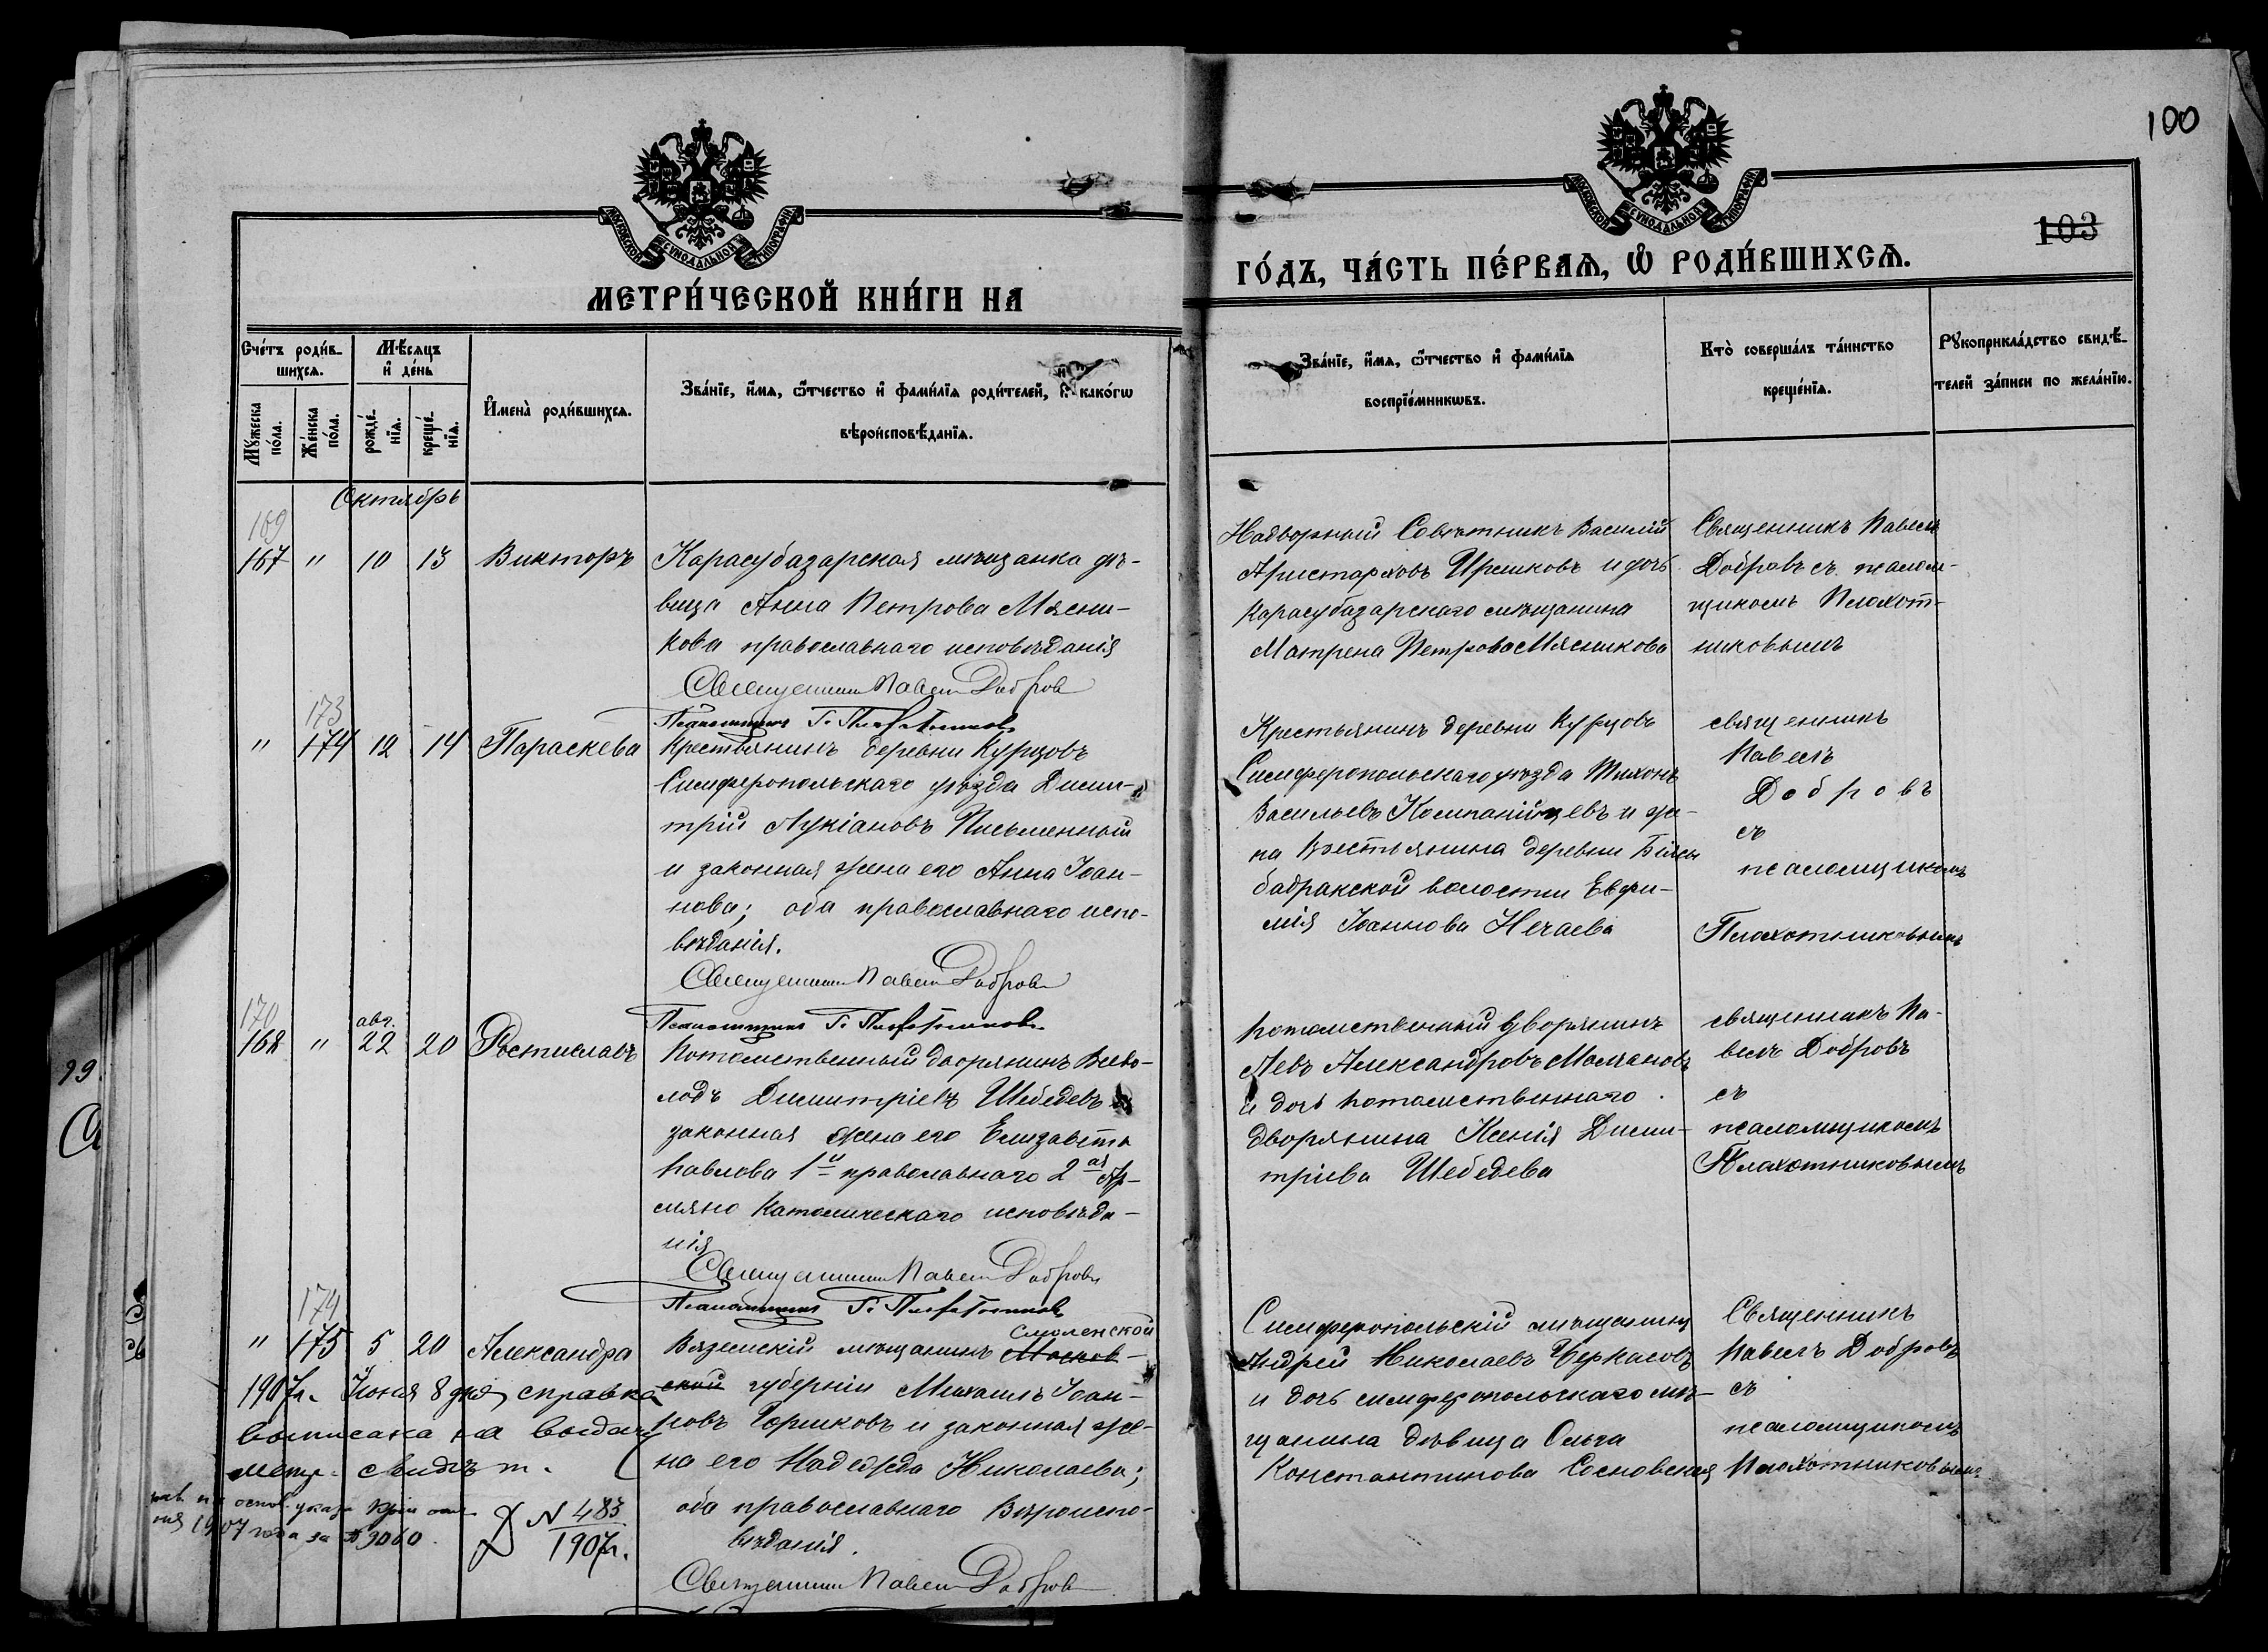 100
103
МОСКОВСКОЙ СѴНОДАЛЬНОЙ ТИПОГРАФІИ
МОСКОВСКОЙ СѴНОДАЛЬНОЙ ТИПОГРАФІИ
МЕТРИ́ЧЕСКОЙ КНИ́ГИ НА
ГО́ДЪ, ЧА́СТЬ ПЕ́РВАѦ, Ѡ РОДИ́ВШИХСѦ.
Сче́тъ роди́в-
шихсѧ.
Мѣ́сяцъ
и де́нь
Мꙋжеска по́ла.
Же́нска по́ла.
рожде́нїѧ.
креще́нїѧ.
Имена̀ роди́вшихсѧ.
Зва́нїе, и́мѧ, ѻ́тчество и фами́лїѧ роди́телей, и како́гѡ
вѣроисповѣ́данїѧ.
Зва́нїе, и́мѧ, ѻ́тчество и фами́лїѧ
воспрїе́мникѡвъ.
Кто̀ соверша́лъ та́инство
креще́нїѧ.
Рꙋкоприкла́дство свидѣ́-
телей за́писи по жела́нїю.
Октябрь
169
167 " 10 13 Викторъ
Карасубазарская мѣщанка дѣ-
вица Анна Петрова Мясни-
кова православнаго исповѣданія
Священникъ Павелъ Добровъ
Псаломщикъ Г. Плахотниковъ
Надворный Совѣтникъ Василій
Аристарховъ Иршковъ и дочь
Карасубазарскаго мѣщанина
Матрена Петрова Мясникова
Священникъ Павелъ
Добровъ съ псалом-
щикомъ Плахот-
никовымъ
173
" 174 12 14 Параскева
Крестьянинъ деревни Курцовъ
Симферопольскаго уѣзда Дими-
трій Лукіановъ Письменный
и законная жена его Анна Іоан-
нова; оба православнаго испо-
вѣданія.
Священникъ Павелъ Добровъ
Псаломщикъ Г. Плахотниковъ
Крестьянинъ деревни Курцовъ
Симферопольскаго уѣзда Тихонъ
Васильевъ Компанійцевъ и же-
на крестьянина деревни Біясы
бадракской волости Евфи-
мія Іоаннова Нечаева
священникъ
Павелъ
Добровъ
съ
псаломщикомъ
Плахотниковымъ
170
авг.
168 " 22 20 Ростиславъ
Потомственный дворянинъ Всево-
лодъ Димитріевъ Шебедевъ и
законная жена его Елизавета
Павлова 1й православнаго 2ая Ар-
мяно Католическаго исповѣда-
нія
Священникъ Павелъ Добровъ
Псаломщикъ Г. Плахотниковъ
Потомственный дворянинъ
Левъ Александровъ Молчановъ
и дочь потомственнаго
дворянина Ксенія Дими-
тріева Шебедева
священникъ Па-
велъ Добровъ
съ
псаломщикомъ
Плахотниковымъ
174
" 175 5 20 Александра
Вяземскій мѣщанинъ Москов- Смоленской
ской губерніи Михаилъ Іоан-
новъ Горшковъ и законная же-
на его Надежда Николаева;
оба православнаго вѣроиспо-
вѣданія.
Священникъ Павелъ Добровъ
Симферопольскій мѣщанинъ
Андрей Николаевъ Черкасовъ
и дочь симферопольскаго мѣ-
щанина дѣвица Ольга
Константинова Сосновская
Священникъ
Павелъ Добровъ
съ
псаломщикомъ
Плахотниковымъ
1907г. Іюня 8 дня, справка
выписана на выдачу
метр. свидѣт.
на основ. указа
1907 года за № 3060.
№ 483
1907г.
99.